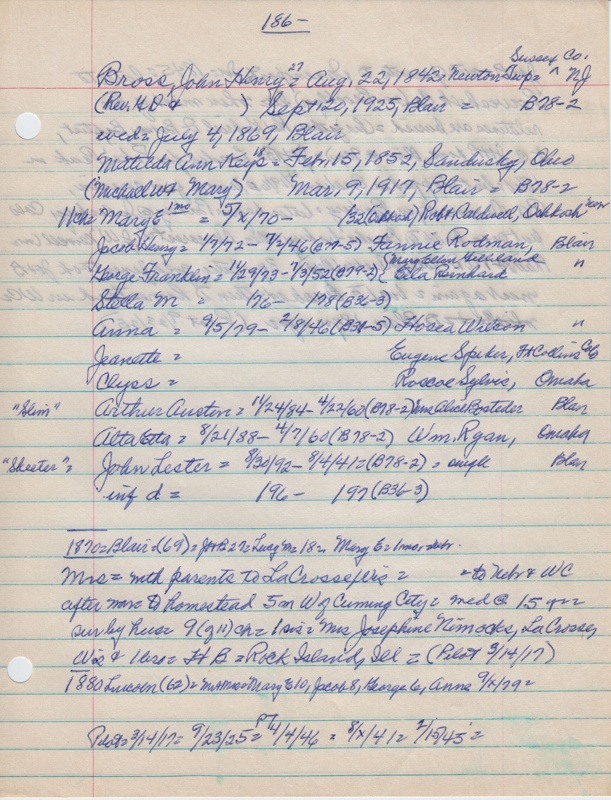 186-
Sussex Co.
Bross, John Henry 27 = Aug, 22, 1842 = Newton Twp = ^ NJ
(Rev. H.D & ) Sept 20, 1925, Blair = B78-2
wed = July 4, 1869, Blair
Matilda Ann Keys 18 = Feb, 15, 1852, Sandusky, Ohio
(Michael W & Mary) Mar, 9, 1917, Blair = B78-2
11ch = Mary E 1mo = 5/x/70 - /32 (Oshkosh) Robt Caldwell, Oshkosh Neb
Jacob Henry = 1/7/72 - 7/2/46 (B79-5) Fannie Rodman, Blair
George Franklin = 11/29/73 - 7/3/52 (B79-2) { Mary Ellen Hilliland
Ella Rinhard "
Stella M = 76 - 178 (B36-3)
Anna = 9/5/79 - 2/8/46 (B31-5) Hosea Wilson "
Jeanette = Eugene Speker, Ft Collins Colo
Clyss = Roscoe Sylvis, Omaha
"Slim" Arthur Austen = 11/24/84 - 4/22/60 (B78-2) Alice Bosteder Blair
Alta Etta = 8/21/88 - 4/7/60 (B78-2) Wm. Ryan, Omaha
"Skeeter" = John Lester = 8/30/92 - 8/4/41 = (B78-2) = single Blair
inf d = 196 - 197 (B36-3)
1870 = Blair = (69) = JH B 27 = Lucy M = 18 = Mary E = 1 mo, Nebr.
Mrs = with parents to LaCrosse, Wis = = to Nebr & WC
after marr to homestead 5m W of Cuming City = med @ 15 yr =
sur by hus = 9 (of 11) ch = 1 sis = Mrs Josephine Nimocks, LaCrosse,
Wis & 1 bro = H B = Rock Island, Ill = (Pilot 3/14/17)
1880 Lincoln (62) = Mary E 10, Jacob 8, George 6, Anna 9/x/79 =
Pilot = 3/14/17 = 9/23/25 = PT 4/4/46 = 8/x/41 = 2/15/45 =